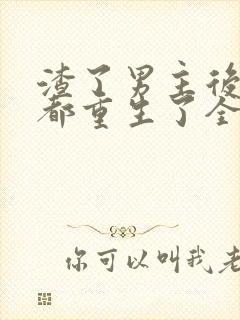 渣了男主後
都重生了全
你可以叫我老